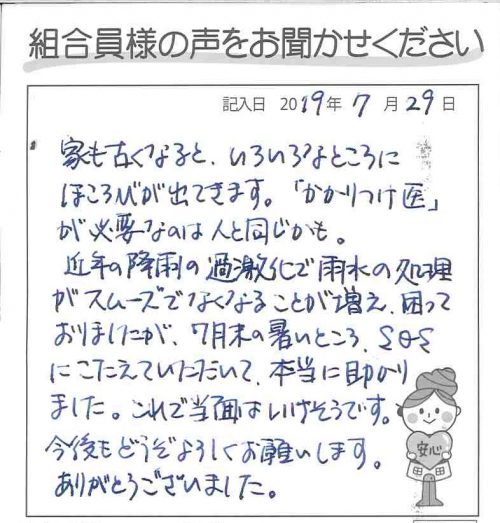 組合員様の声をお聞かせください
記入日 2019年 7月 29日
家も古くなると、いろいろなところに
ほころびが出てきます。「かかりつけ医」
が必要なのは人と同じかも。
近年の降雨の過激化で雨水の処理
がスムーズでなくなることが増え、困って
おりましたが、7月末の暑いところ、SOS
にこたえていただいて、本当に助かり
ました。これで当面はいけそうです。
今後もどうぞよろしくお願いします。
ありがとうございました。
安心